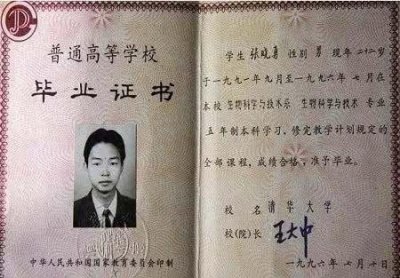 普通高等学校
毕业证书
中华人民共和国国家教育委员会印制
学生 张晓勇 性别 男 现年 二十二岁
于一九九一年九月至一九九六年七月在
本校 生物科学与技术系 生物科学与技术 专业
五年制本科学习，修完教学计划规定的
全部课程，成绩合格，准予毕业。
校名 清华大学
校(院)长 王大中
一九九六年七月十日